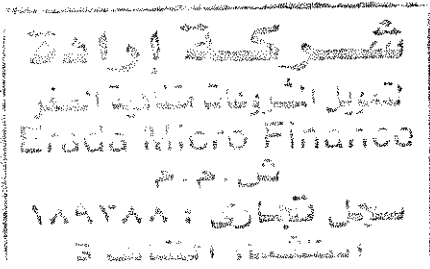 شركة إرادة
لتمويل المشروعات متناهية الصغر
Erada Micro Finance
ش.م.م
سجل تجارى : ١٨٩٢٨٨